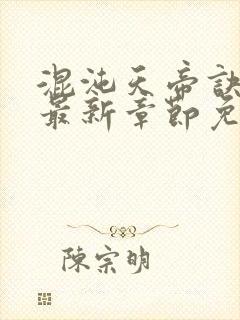 混沌天帝訣
最新章節免
陳宗明